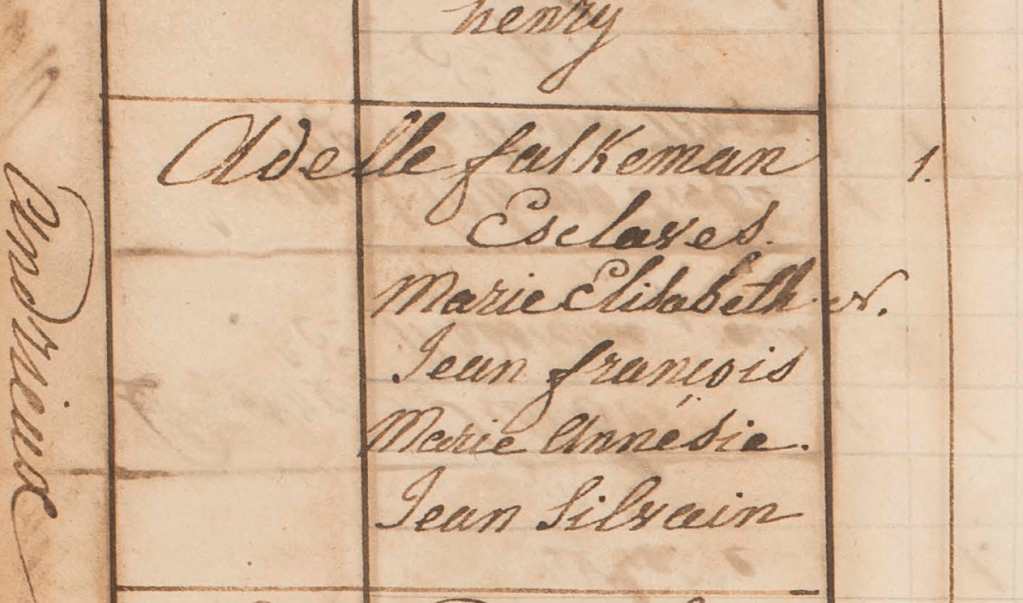 henry
Adelle falkeman 1.
Esclaves.
Marie Elisabeth N.
Jean françois
Marie Annésie.
Jean Silvain